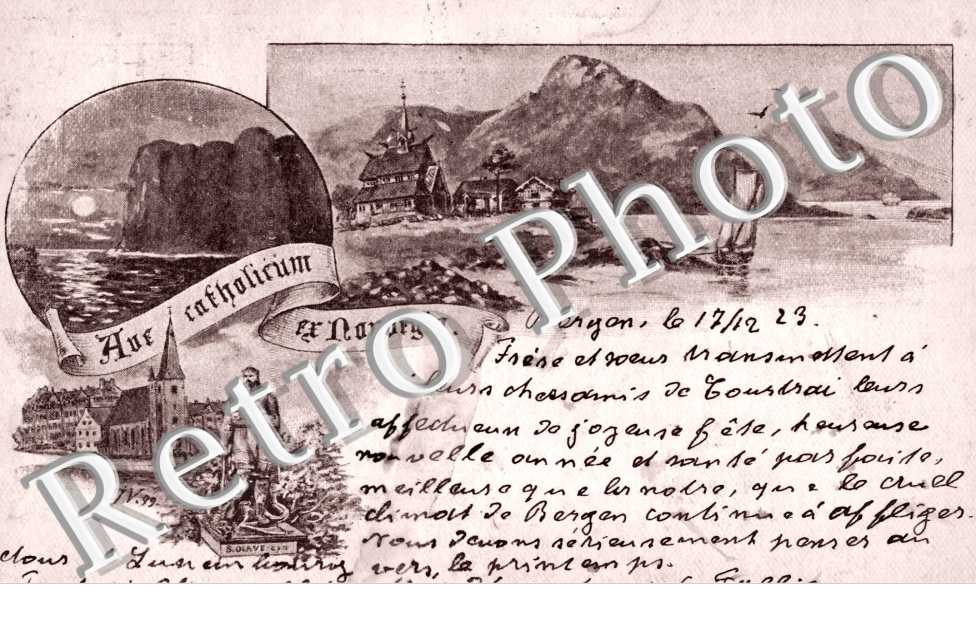 Ave catholicum
ex Norvegia.
Bergen, le 17/12 23.
Frère et soeur transmettent à
leurs chers amis de Tourtrai leurs
affectueux de joyeuse fête, heureuse
nouvelle année et santé parfaite,
meilleure que la notre, que le cruel
climat de Bergen continue à affliger.
Nous devons sérieusement penser au
vers, le printemps.
JV. 99.
S. OLAVE
Retro Photo